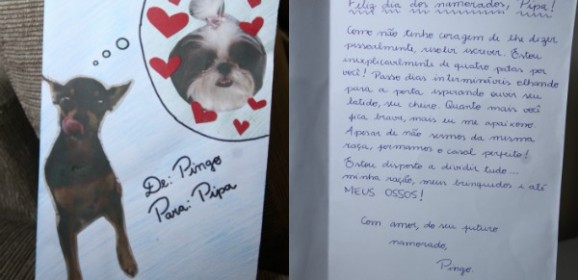 De: Pingo
Para: Pipa
Feliz dia dos namorados, Pipa!
Como não tenho coragem de lhe dizer
pessoalmente, resolvi escrever. Estou
inexplicavelmente de quatro patas por
você! Passo dias intermináveis olhando
para a porta esperando ouvir seu
latido, seu cheiro. Quanto mais você
fica brava, mais eu me apaixono.
Apesar de não sermos da mesma
raça, formamos o casal perfeito!
Estou disposto a dividir tudo...
minha ração, meus brinquedos e até
MEUS OSSOS!
Com amor, do seu futuro
namorado,
Pingo.